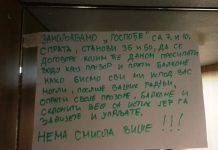 ЗАМОЉАВАМО „ГОСПОЂЕ" СА 7. И 10.
СПРАТА, СТАНОВИ 36 И 50, ДА СЕ
ДОГОВОРЕ КОЈИМ ЋЕ ДАНОМ ПРОСИПАТИ
ВОДУ КРОЗ ПРОЗОР И ПРАТИ БАЛКОНЕ
КАКО БИСМО СВИ МИ ИСПОД ВАС
МОГЛИ, ПОСЛЕ ВАШИХ РАДЊИ,
ОПРАТИ СВОЈЕ ПРОЗОРЕ, БАЛКОНЕ И
СКЛОНИТИ ВЕШ СА ИСТИХ ЈЕР ГА
ЗАЛИЈЕТЕ И УПРЉАТЕ.
НЕМА СМИСЛА ВИШЕ !!!